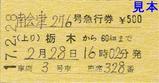 見本
南会津276号急行券 ¥500
(上り) 栃木から60kmまで
2月28日16時02分発
前 3号車 市席328番
17.2.28